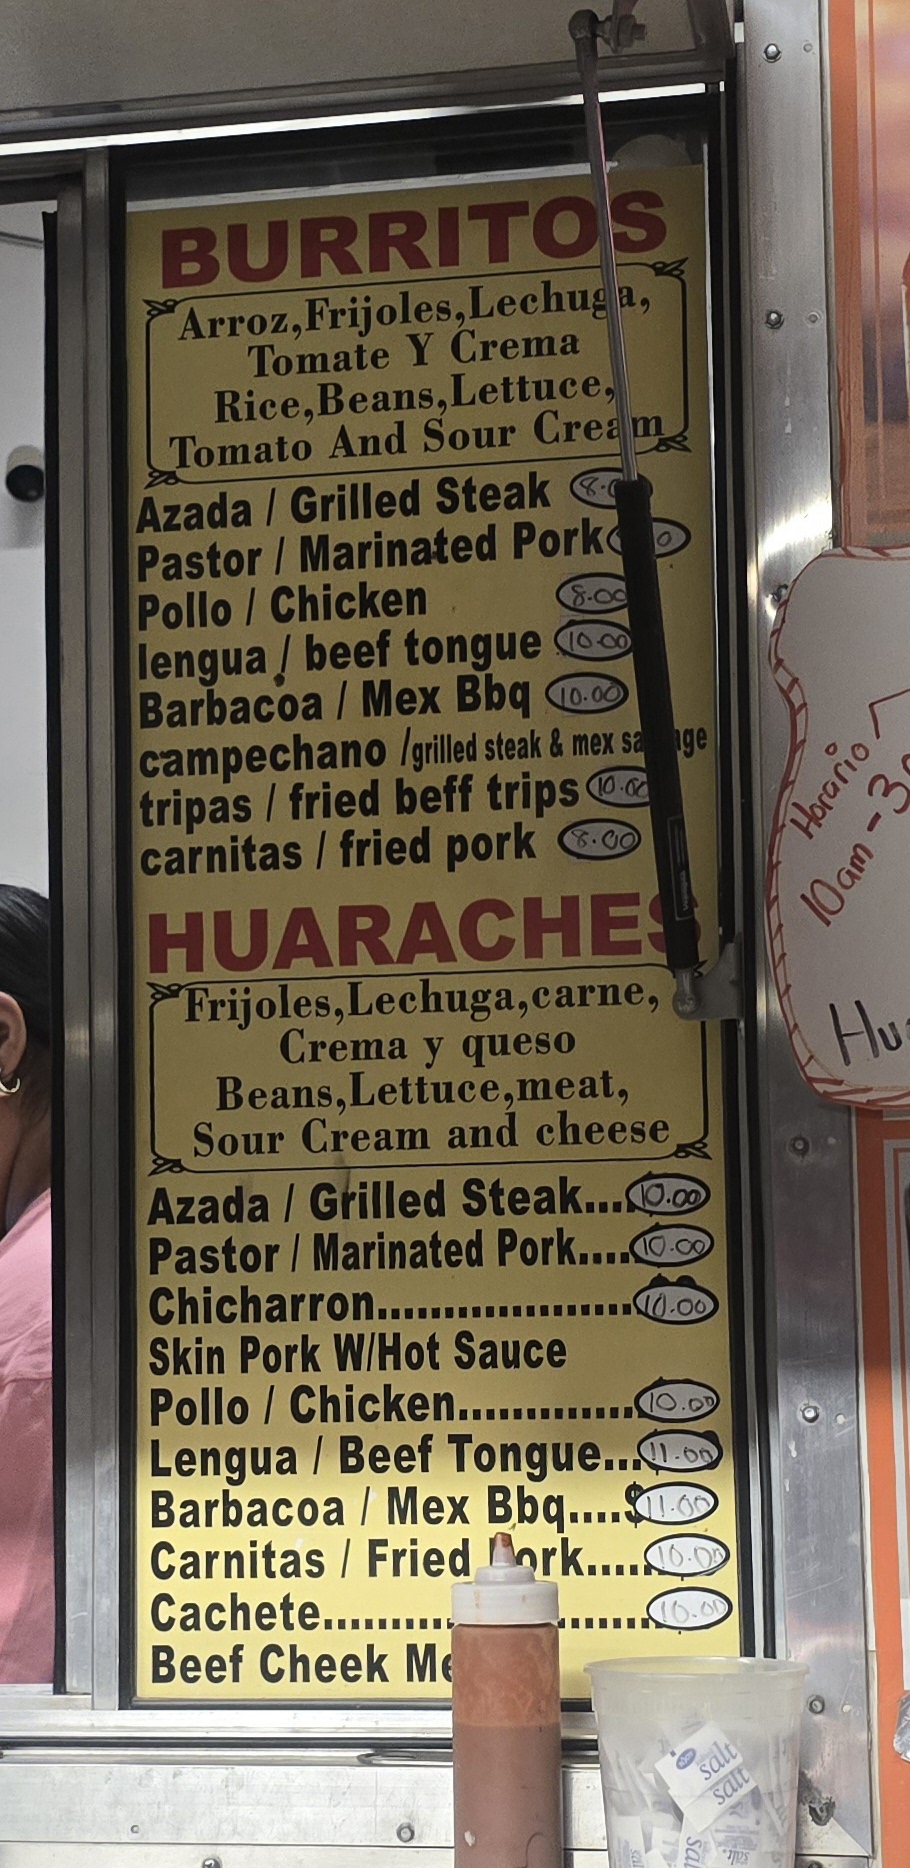 BURRITOS
Arroz,Frijoles,Lechuga,
Tomate Y Crema
Rice,Beans,Lettuce,
Tomato And Sour Cream
Azada / Grilled Steak
Pastor / Marinated Pork
Pollo / Chicken 8.00
lengua / beef tongue 10.00
Barbacoa / Mex Bbq 10.00
campechano /grilled steak & mex sausage
tripas / fried beff trips 10.00
carnitas / fried pork 8.00
HUARACHES
Frijoles,Lechuga,carne,
Crema y queso
Beans,Lettuce,meat,
Sour Cream and cheese
Azada / Grilled Steak.... 10.00
Pastor / Marinated Pork.... 10.00
Chicharron................... 10.00
Skin Pork W/Hot Sauce
Pollo / Chicken.............. 10.00
Lengua / Beef Tongue... 11.00
Barbacoa / Mex Bbq....$ 11.00
Carnitas / Fried Pork..... 10.00
Cachete........................ 10.00
Beef Cheek
Horario
10am-
salt
salt
salt